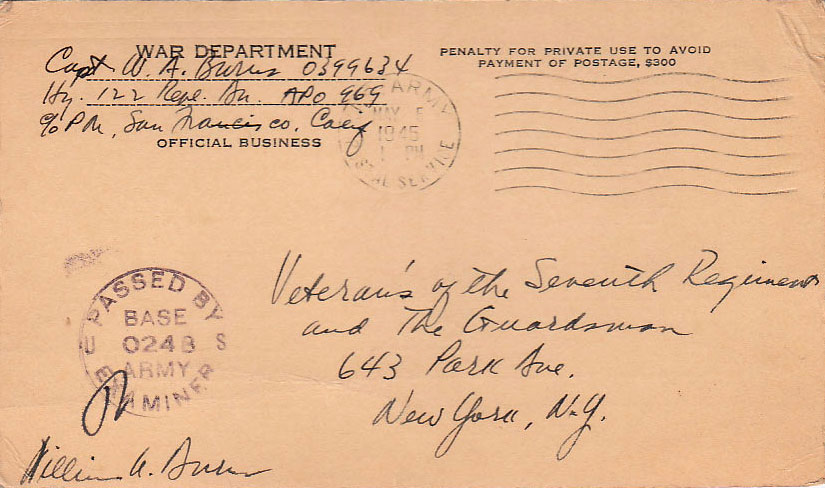 WAR DEPARTMENT
PENALTY FOR PRIVATE USE TO AVOID
PAYMENT OF POSTAGE, $300
Capt W. A. Burns 0399634
Hq. 122 Repl. Bn. APO 969
c/o PM, San Francisco, Calif
OFFICIAL BUSINESS
ARMY
MAY
1945
1 PM
SERVICE
PASSED BY
BASE
U 0248 S
ARMY
EXAMINER
Veteran's of the Seventh Regiment
and The Guardsman
643 Park Ave.
New York, N.Y.
William A. Burns